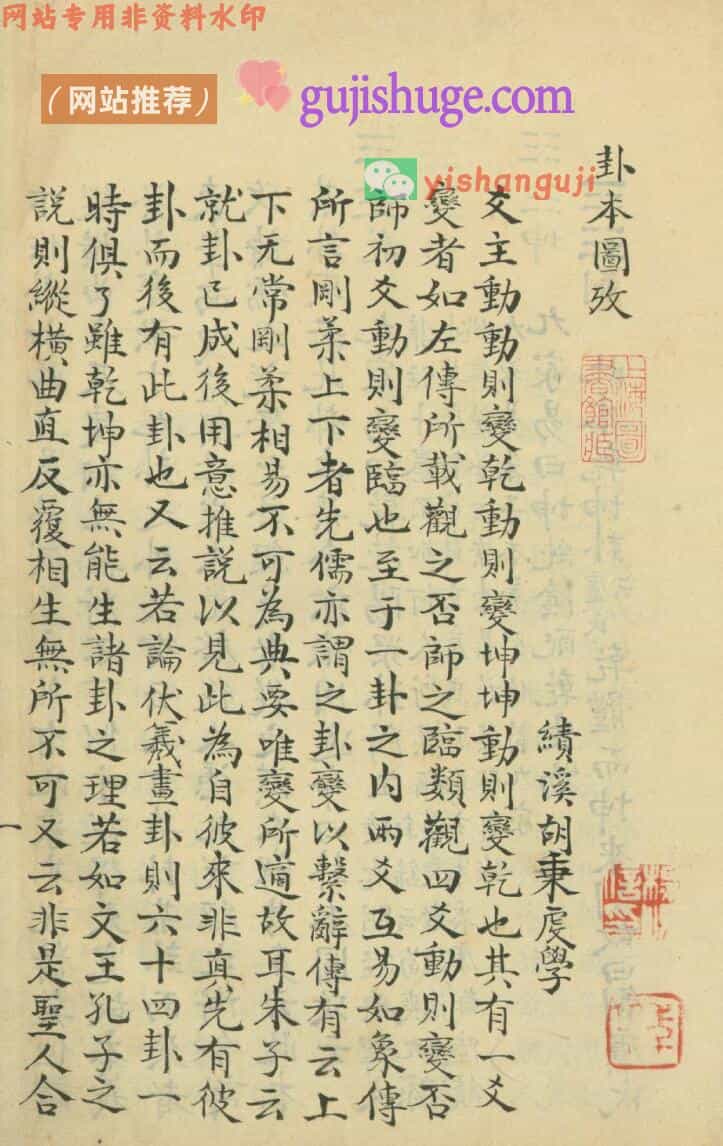 网站专用非资料水印
（网站推荐）
gujishuge.com
yishanguji
卦本圖攷
績溪胡秉虔學
爻主動動則變乾動則變坤坤動則變乾也其有一爻
變者如左傳所載觀之否師之臨類觀四爻動則變否
師初爻動則變臨也至于一卦之内兩爻互易如彖傳
所言剛柔上下者先儒亦謂之卦變以繫辭傳有云上
下无常剛柔相易不可為典要唯變所適故耳朱子云
就卦已成後用意推說以見此為自彼來非真先有彼
卦而後有此卦也又云若論伏羲畫卦則六十四卦一
時俱了雖乾坤亦無能生諸卦之理若如文王孔子之
說則縱橫曲直反覆相生無所不可又云非是聖人合
一
上海圖
書館藏